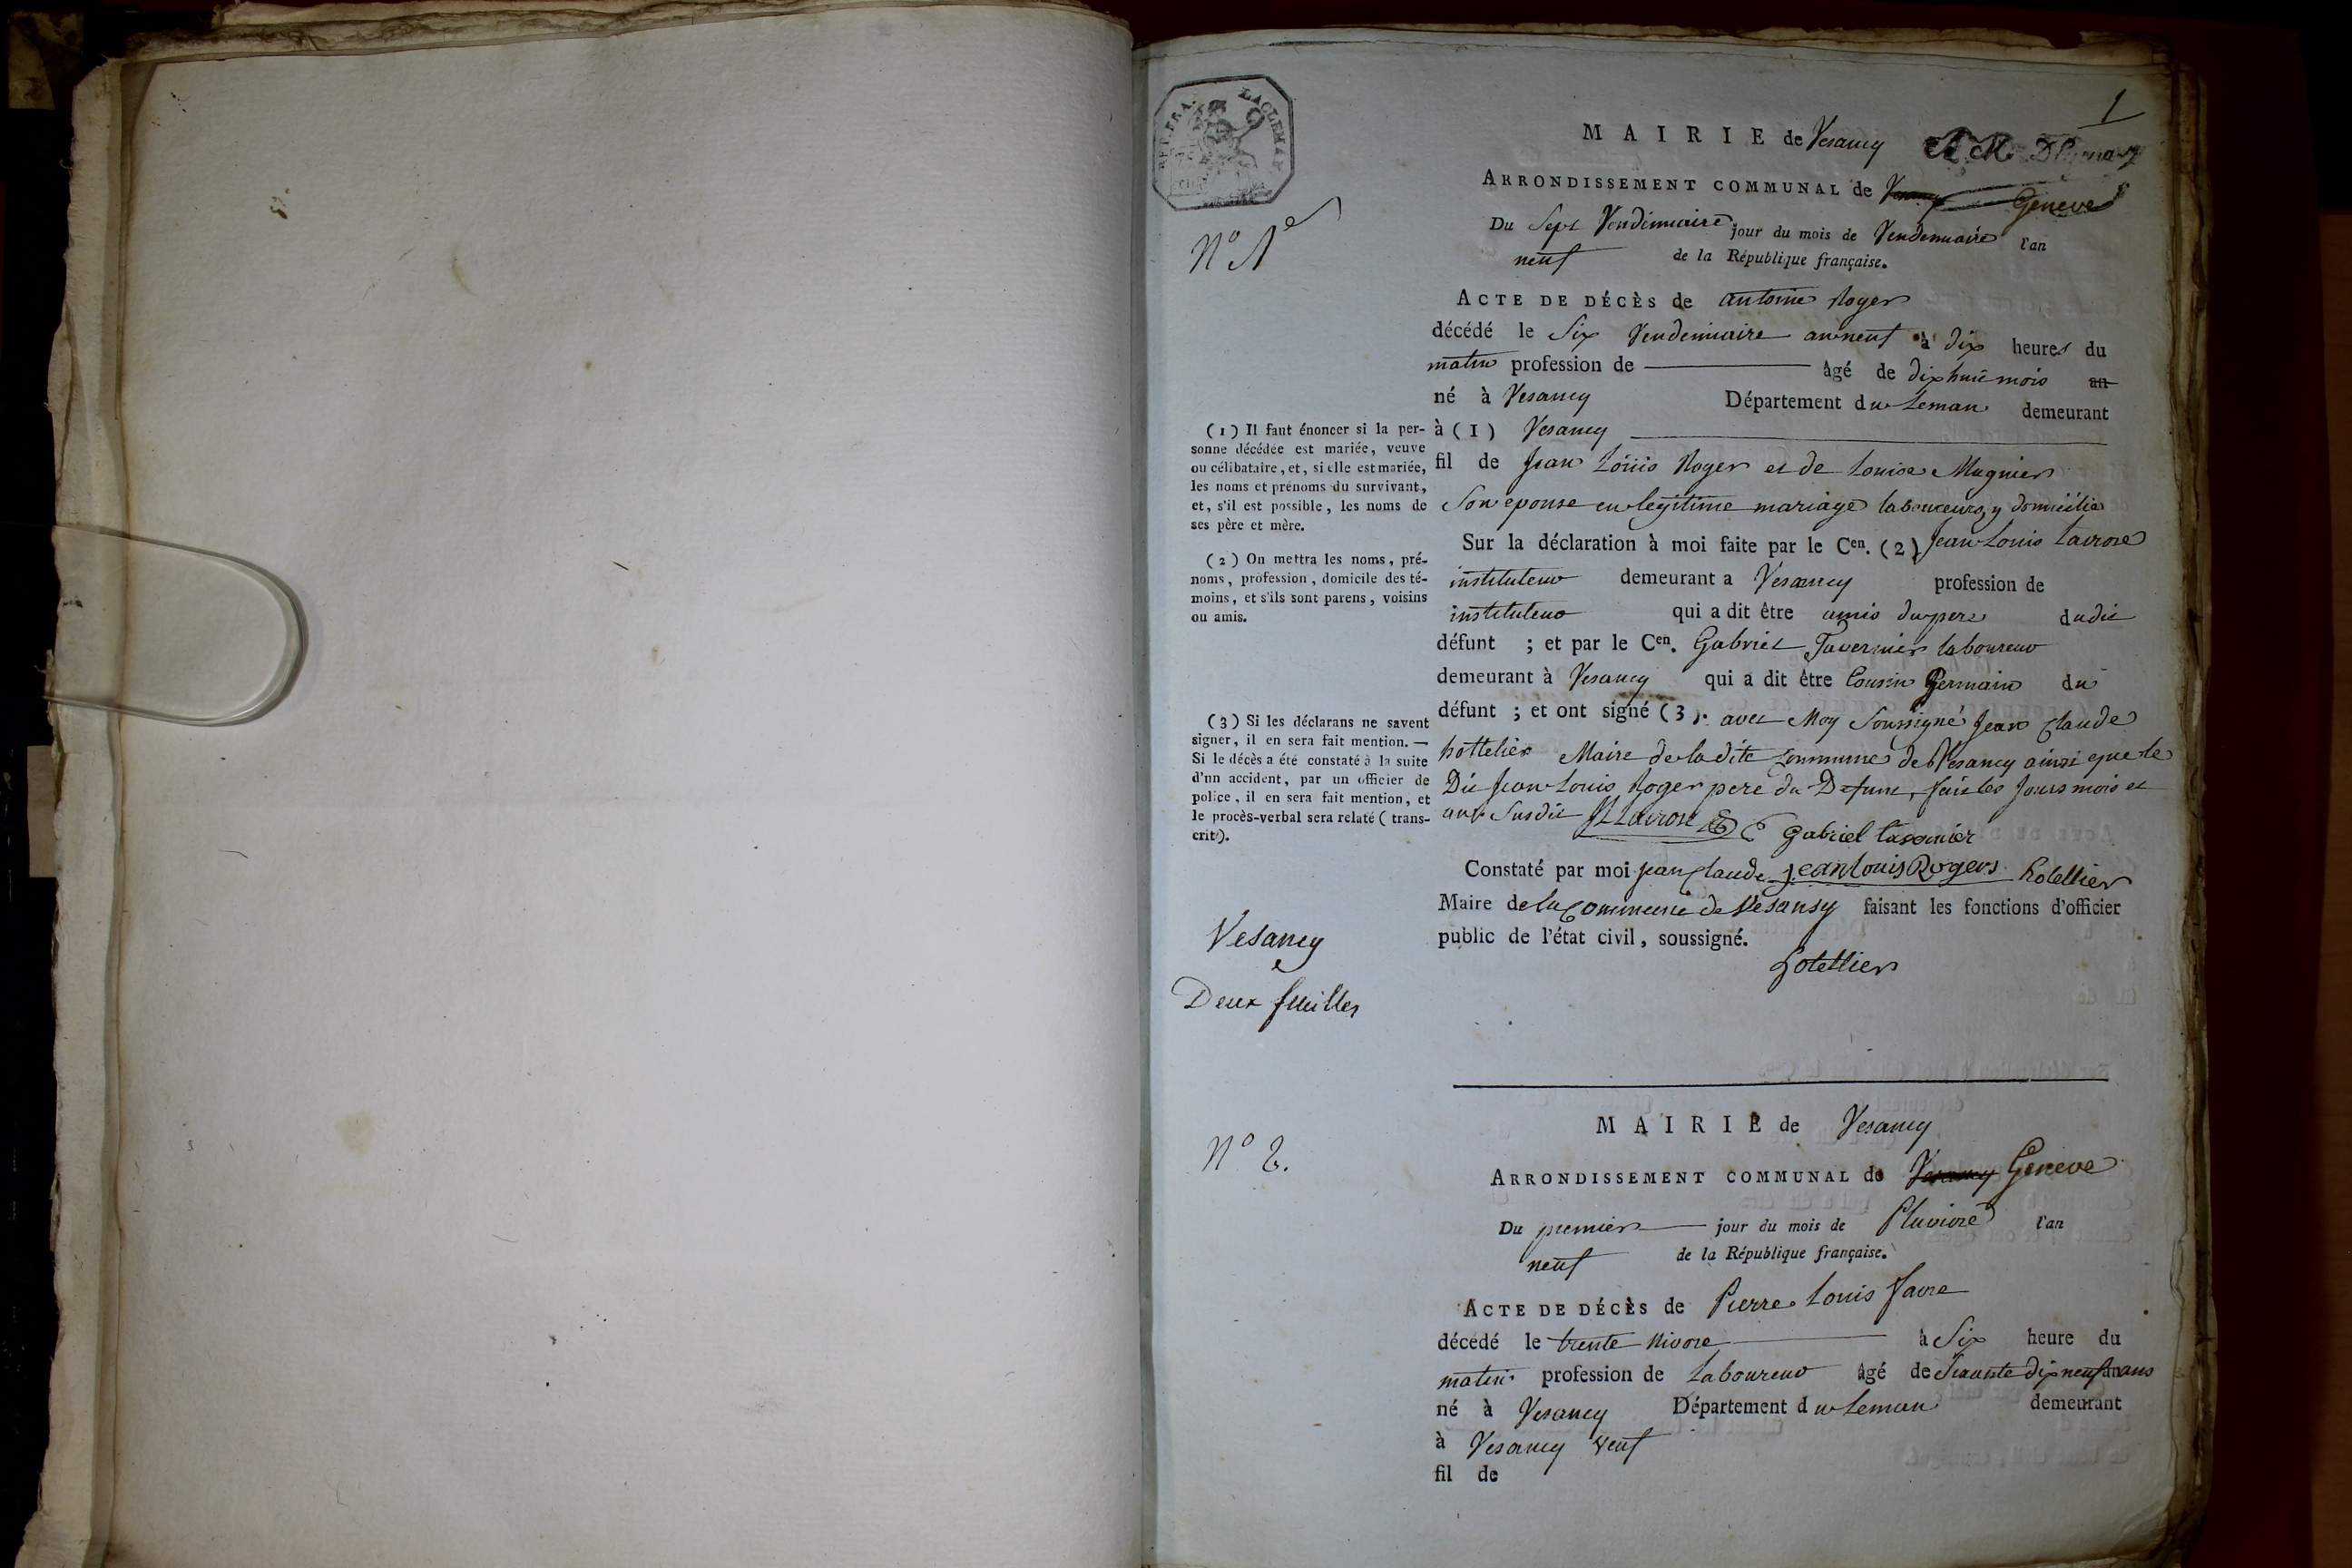 1
REP. FRA.
MAIRIE de Vesancy
ARRONDISSEMENT COMMUNAL de Vesancy Geneve
Du Sept Vendemiaire jour du mois de Vendemiaire l'an
neuf de la République française.
N° 1e
ACTE DE DÉCÈS de antoine Roger
décédé le Six Vendemiaire an neuf à dix heures du
matin profession de âgé de dix huit mois an
né à Vesancy Département du Leman demeurant
à (1) Vesancy
fil de Jean Louis Roger et de Louise Mugnier
Son epouse en legitime mariage laboureurs y domicilié
Sur la déclaration à moi faite par le Cen. (2) Jean Louis Lavrose
instituteur demeurant a Vesancy profession de
instituteur qui a dit être amis du pere dudit
défunt ; et par le Cen. Gabriel Tavernier laboureur
demeurant à Vesancy qui a dit être Cousin Germain du
défunt ; et ont signé (3). avec Moy Soussigné Jean Claude
hottelier Maire de la dite Commune de Vesancy ainsi que le
Dit Jean Louis Roger pere du Defunt, fait les Jours mois et
an Susdit JL Lavrose Gabriel tavernier
Constaté par moi jean Claude jeanlouis Rogers hotellier
Maire de la Commune de Vesansy faisant les fonctions d'officier
public de l'état civil, soussigné.
hotellier
(1) Il faut énoncer si la per-
sonne décédée est mariée, veuve
ou célibataire, et, si elle est mariée,
les noms et prénoms du survivant,
et, s'il est possible, les noms de
ses père et mère.
(2) On mettra les noms, pré-
noms, profession, domicile des té-
moins, et s'ils sont parens, voisins
ou amis.
(3) Si les déclarans ne savent
signer, il en sera fait mention. —
Si le décès a été constaté à la suite
d'un accident, par un officier de
police, il en sera fait mention, et
le procès-verbal sera relaté ( trans-
crit ).
Vesancy
Deux feuilles
N° 2.
MAIRIE de Vesancy
ARRONDISSEMENT COMMUNAL de Vesancy Geneve
Du premier jour du mois de Pluviose l'an
neuf de la République française.
ACTE DE DÉCÈS de Pierre Louis favre
décédé le trente Nivose à Six heure du
matin profession de Laboureur âgé de Soixante dix neuf ans
né à Vesancy Département du Leman demeurant
à Vesancy veuf
fil de